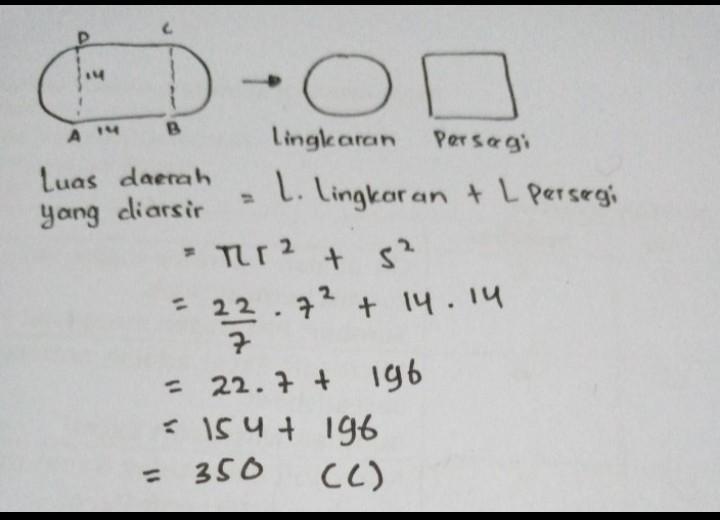 D C
14
A 14 B
Lingkaran Persegi
Luas daerah
yang diarsir = L. Lingkaran + L Persegi
= πr² + s²
= 22/7 . 7² + 14 . 14
= 22.7 + 196
= 154 + 196
= 350 (C)